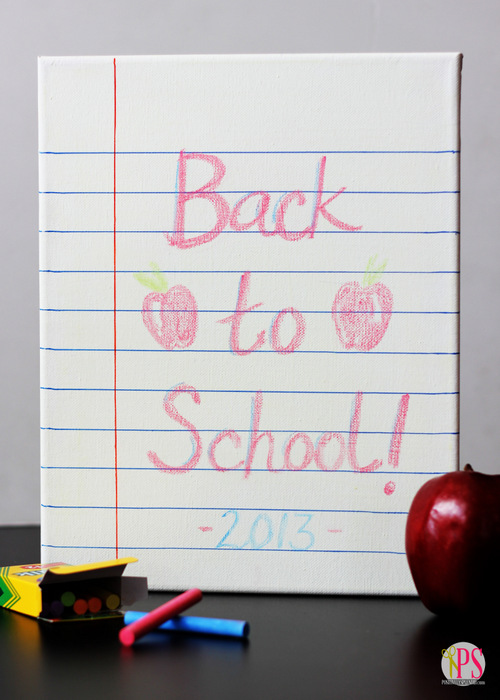 Back
to
School!
-2013-
PS